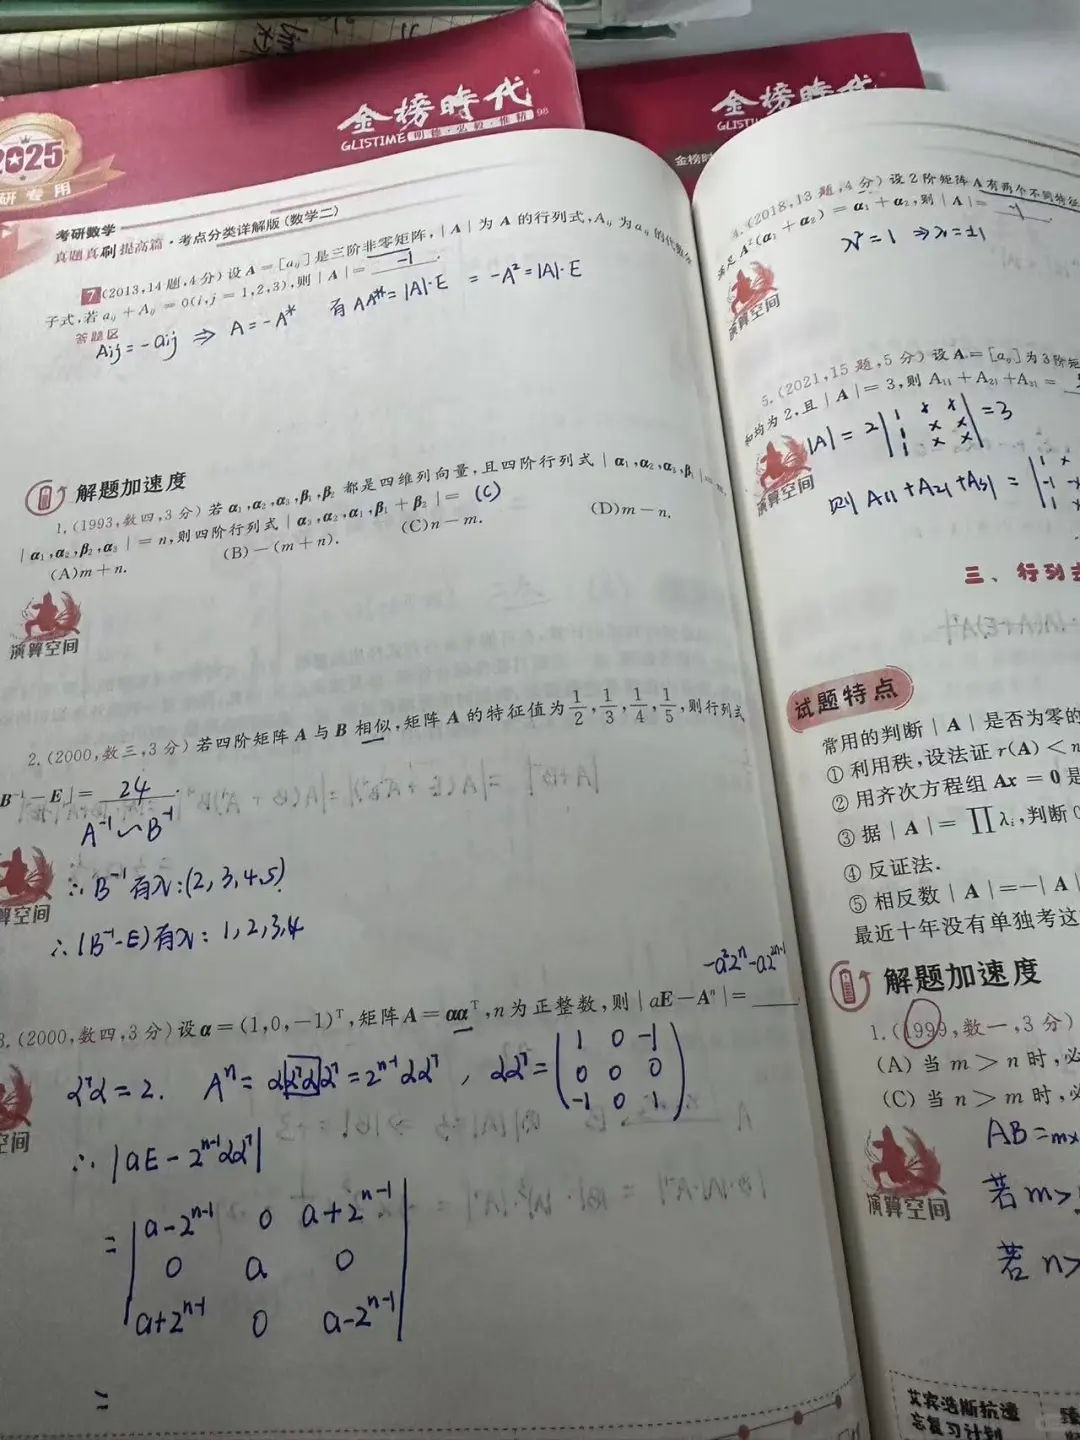 金榜時代
GLISTIME 明德·弘毅·惟精 98
2025
研专用
金榜時代
GLISTI
金榜时
考研数学
真题真刷提高篇·考点分类详解版(数学二)
7 (2013,14题,4分)设A=[aij]是三阶非零矩阵,|A|为A的行列式,Aij为aij的代数余
子式,若aij+Aij=0(i,j=1,2,3),则|A|= -1 .
答题区
Aij=-aij ⇒ A=-A* 有AA*=|A|·E =-A²=|A|·E
解题加速度
1.(1993,数四,3分)若α1,α2,α3,β1,β2都是四维列向量,且四阶行列式|α1,α2,α3,β1|=m,
|α1,α2,β2,α3|=n,则四阶行列式|α3,α2,α1,β1+β2|= (C)
(A)m+n. (B)-(m+n). (C)n-m. (D)m-n.
演算空间
2.(2000,数三,3分)若四阶矩阵A与B相似,矩阵A的特征值为1/2,1/3,1/4,1/5,则行列式
B⁻¹-E|= 24 .
A⁻¹∽B⁻¹
∴B⁻¹有λ:(2,3,4,5)
算空间
∴(B⁻¹-E)有λ: 1,2,3,4
-a²2ⁿ-a2²ⁿ⁻¹
3.(2000,数四,3分)设α=(1,0,-1)ᵀ,矩阵A=ααᵀ,n为正整数,则|aE-Aⁿ|=
αᵀα=2. Aⁿ=ααᵀααᵀ=2ⁿ⁻¹ααᵀ, ααᵀ=
1 0 -1
0 0 0
-1 0 1
空间
∴|aE-2ⁿ⁻¹ααᵀ|
= a-2ⁿ⁻¹ 0 a+2ⁿ⁻¹
0 a 0
a+2ⁿ⁻¹ 0 a-2ⁿ⁻¹
=
4.(2018,13题,4分)设2阶矩阵A有两个不同特征
满足A²(α1+α2)=α1+α2,则|A|= -1
λ²=1 ⇒λ=±1
演算空间
5.(2021,15题,5分)设A=[aij]为3阶矩
和均为2,且|A|=3,则A11+A21+A31=
|A|=2
1 x x
1 x x
1 x x
=3
演算空间
则A11+A21+A31=
三、行列式
试题特点
常用的判断|A|是否为零的
①利用秩,设法证r(A)<n
②用齐次方程组Ax=0是
③据|A|=∏λi,判断0
④反证法.
⑤相反数|A|=-|A|
最近十年没有单独考这
解题加速度
1.(1999,数一,3分)
(A)当m>n时,必
(C)当n>m时,必
AB=m×
演算空间
若m>
若n>
艾宾浩斯抗遗
忘复习计划